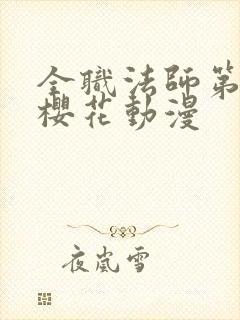 全職法師第
櫻花動漫
夜嵐雪